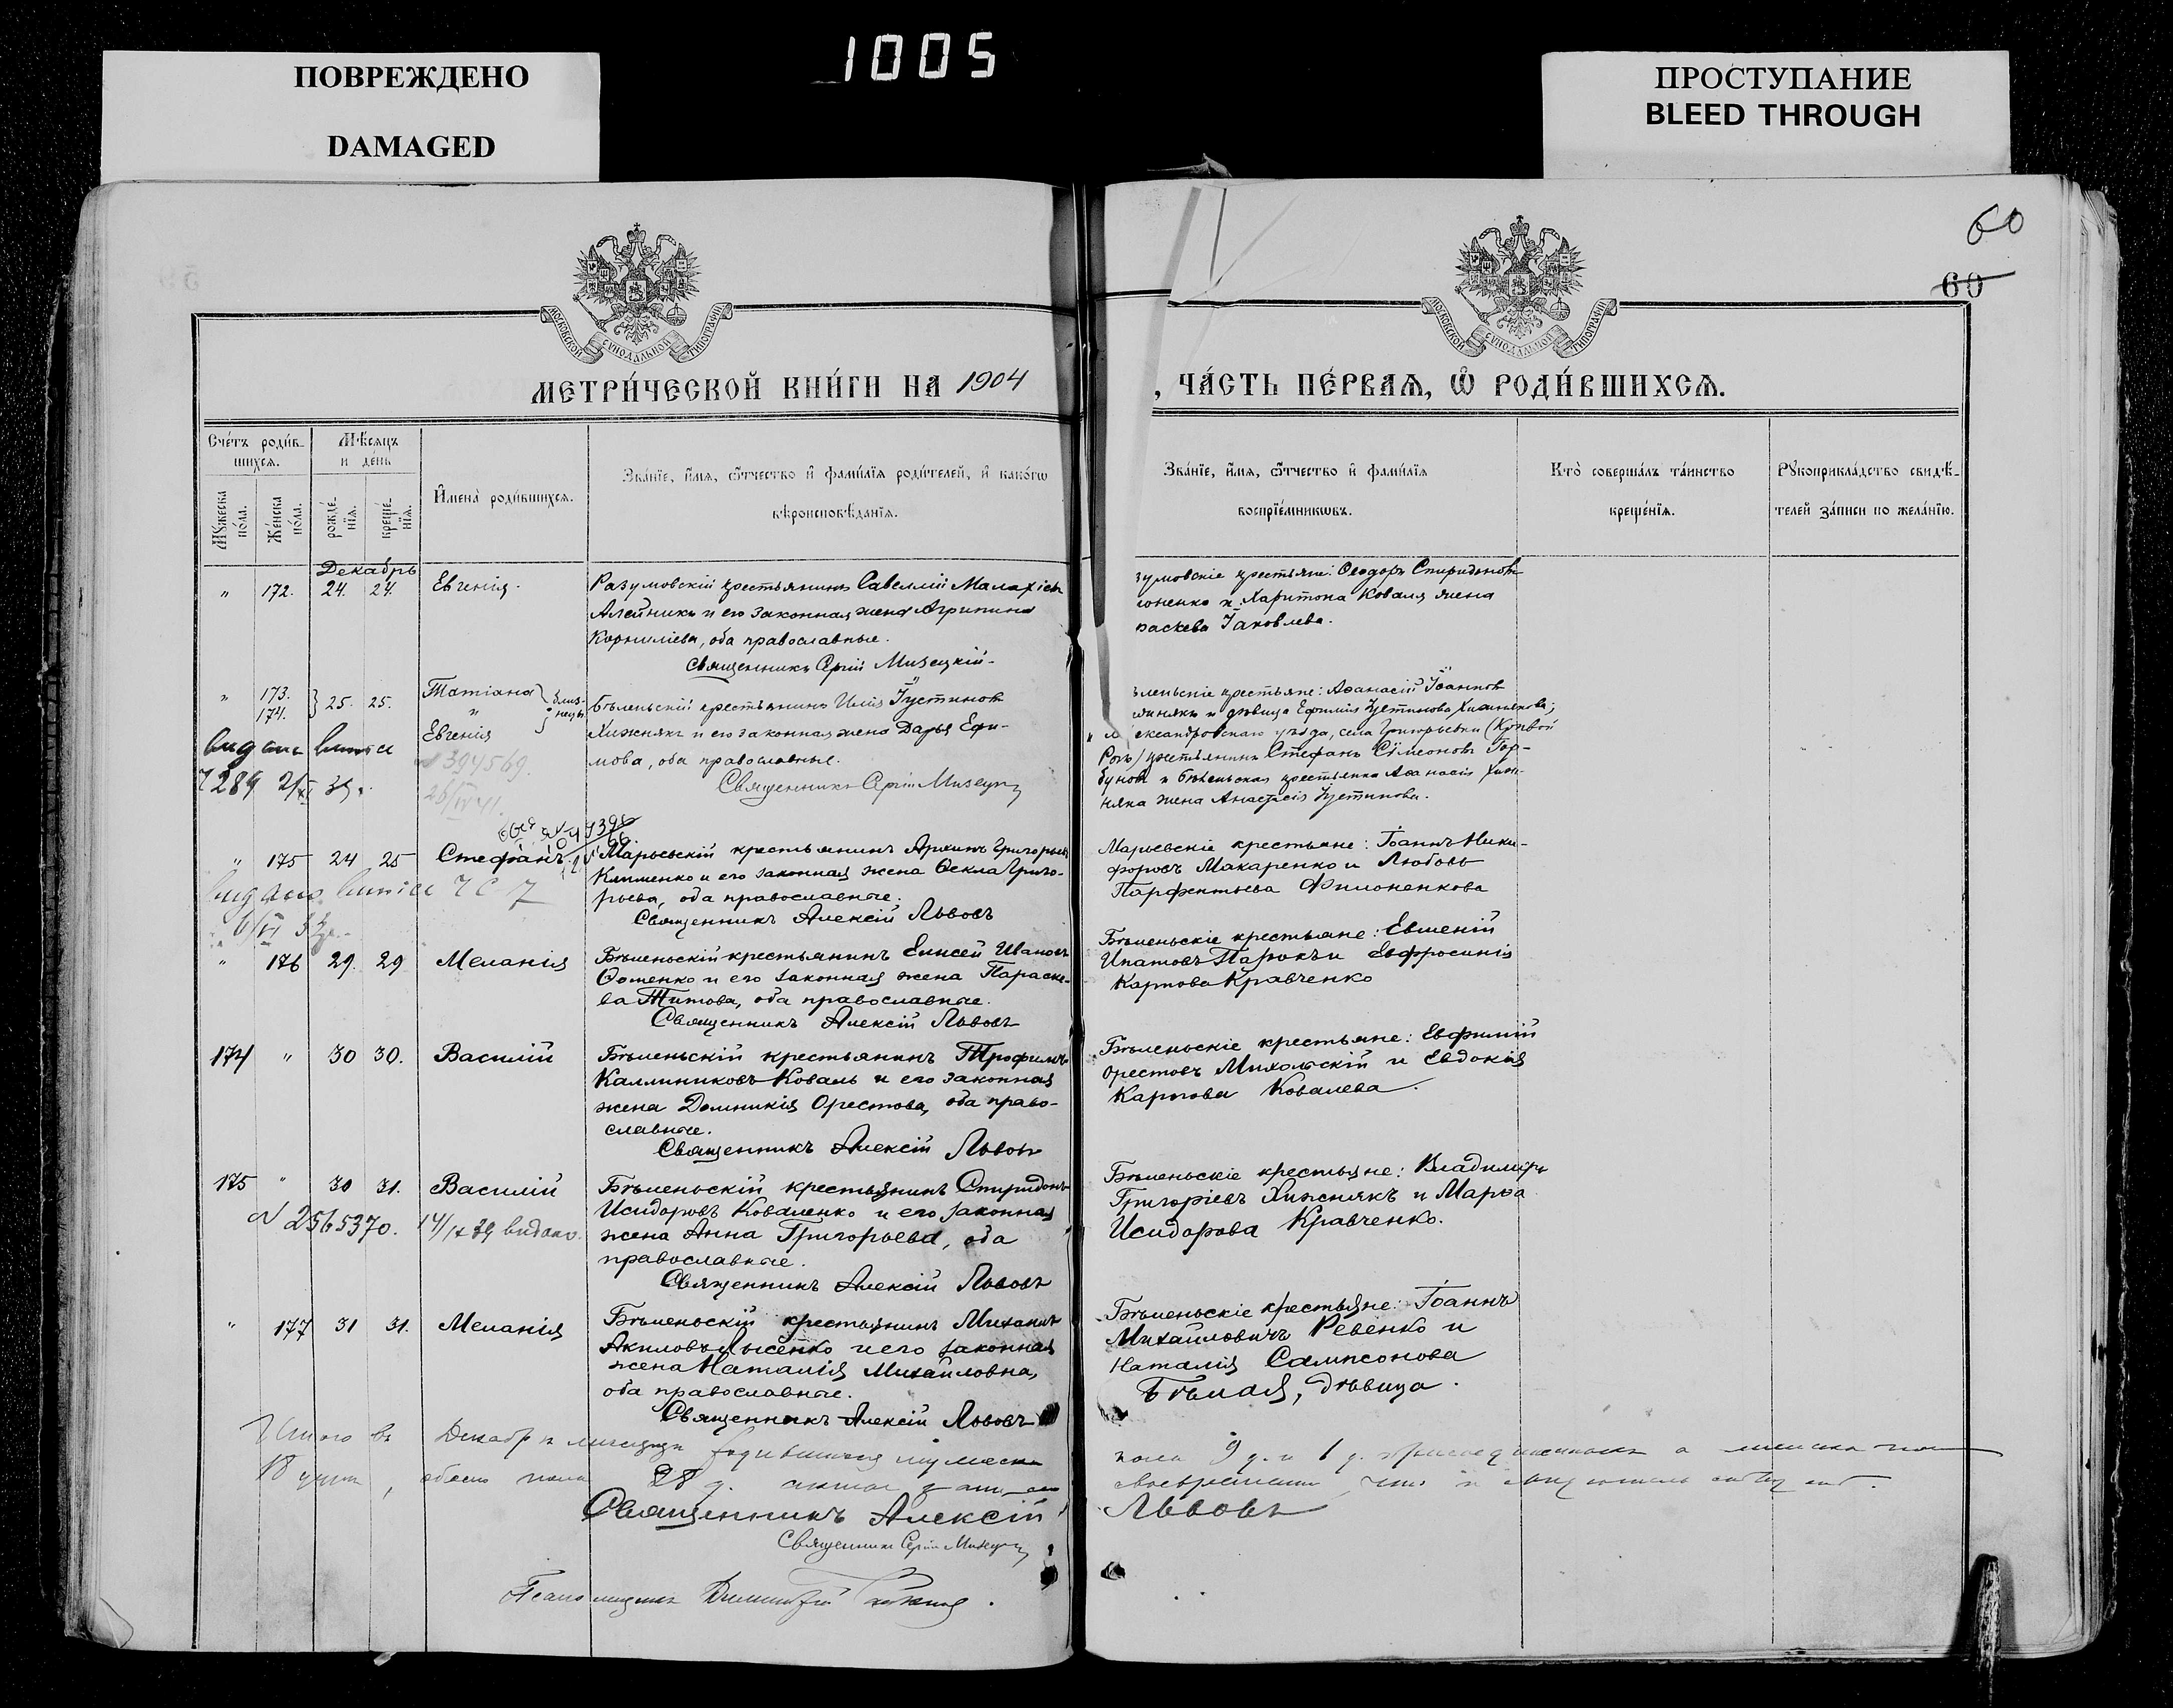 ПОВРЕЖДЕНО
DAMAGED
1005
ПРОСТУПАНИЕ
BLEED THROUGH
60
60
МОСКОВСКОЙ СѴНОДАЛЬНОЙ ТИПОГРАФІИ
МОСКОВСКОЙ СѴНОДАЛЬНОЙ ТИПОГРАФІИ
МЕТРИ́ЧЕСКОЙ КНИ́ГИ НА 1904
, ЧА́СТЬ ПЕ́РВАѦ, Ѿ РОДИ́ВШИХСѦ.
Сче́тъ роди́в-
шихсѧ.
Мꙋ́жеска по́ла.
Же́нска по́ла.
Мѣ́сѧцъ
и де́нь
рожде́-нїѧ.
креще́-нїѧ.
И҆мена̀ роди́вшихсѧ.
Зва́нїе, и҆́мѧ, ѻ҆́тчество и҆ фами́лїѧ роди́телей, и҆ како́гѡ
вѣроисповѣ́данїѧ.
Зва́нїе, и҆́мѧ, ѻ҆́тчество и҆ фами́лїѧ
воспрїе́мникѡвъ.
Кто̀ соверша́лъ та́инство
креще́нїѧ.
Рꙋкоприкла́дство свидѣ́-
телей за́писи по жела́нїю.
Декабрь
" 172. 24. 24. Евгенія.
Разумовскій крестьянинъ Савелій Малахіевъ
Алейникъ и его законная жена Агрипина
Корниліева, оба православные.
Священникъ Сергій Мизецкій
зумовскіе крестьяне: Ѳеодоръ Спиридоновъ
юненко и Харитона Коваля жена
раскева Іаковлева.
" 173. 174. } 25. 25. Татіана " Евгенія } близ-нецы
Бѣленьскій крестьянинъ Илія Іустиновъ
Хижнякъ и его законная жена Дарья Ефи-
мова, оба православные.
Священникъ Сергій Мизецкій
видана виписи
394569.
7289
26/IV 41.
ленскіе крестьяне: Аѳанасій Іоанновъ
жинякъ и дѣвица Ефимія Іустинова Хижнякова;
ександровскаго уѣзда, села Григорьевки (Кривой
Рогъ) крестьянинъ Стефанъ Сѵмеоновъ Гор-
буновъ и Бѣленьская крестьянка Аѳанасія Хиж-
няка жена Анастасія Іустинова.
" 175 24 25 Стефанъ
Марьевскій крестьянинъ Архипъ Григорьевъ
Клименко и его законная жена Ѳекла Григо-
рьева, оба православные.
Священникъ Алексій Львовъ
видано виписи
Марьевскіе крестьяне: Іоаннъ Ники-
форовъ Макаренко и Любовь
Парфентьева Филоненкова
" 176 29. 29 Меланія
Бѣленьскій крестьянинъ Елисей Ивановъ
Ѳоменко и его законная жена Параске-
ва Титова, оба православные.
Священникъ Алексій Львовъ
Бѣленьскіе крестьяне: Евменій
Ипатовъ и Евфросинія
Карпова Кравченко
174 " 30 30. Василій
Бѣленьскій крестьянинъ Трофимъ
Каллиниковъ Коваль и его законная
жена Домникія Орестова, оба право-
славные.
Священникъ Алексій Львовъ
Бѣленьскіе крестьяне: Евфимій
Орестовъ Михольскій и Евдокія
Карпова Ковалева.
175 " 30 31. Василій
N 2565370. 14/IX 39 видано.
Бѣленьскій крестьянинъ Спиридонъ
Исидоровъ Коваленко и его законная
жена Анна Григорьева, оба
православные.
Священникъ Алексій Львовъ
Бѣленьскіе крестьяне: Владимиръ
Григоріевъ Хижнякъ и Марѳа
Исидорова Кравченко.
" 177 31 31. Меланія
Бѣленьскій крестьянинъ Михаилъ
Акиловъ Лысенко и его законная
жена Наталія Михайловна,
оба православные.
Священникъ Алексій Львовъ
Бѣленьскіе крестьяне: Іоаннъ
Михайловичъ Ревенко и
Наталія Сампсонова
Бѣлая, дѣвица.
Итого въ Декабрѣ мѣсяцѣ родившихся мужеска
пола 9 д. и 1 д. а женска пола
18 душъ, обоего пола 28 д.
Священникъ Алексій Львовъ
Священникъ Сергій Мизецкій
Псаломщикъ Димитрій